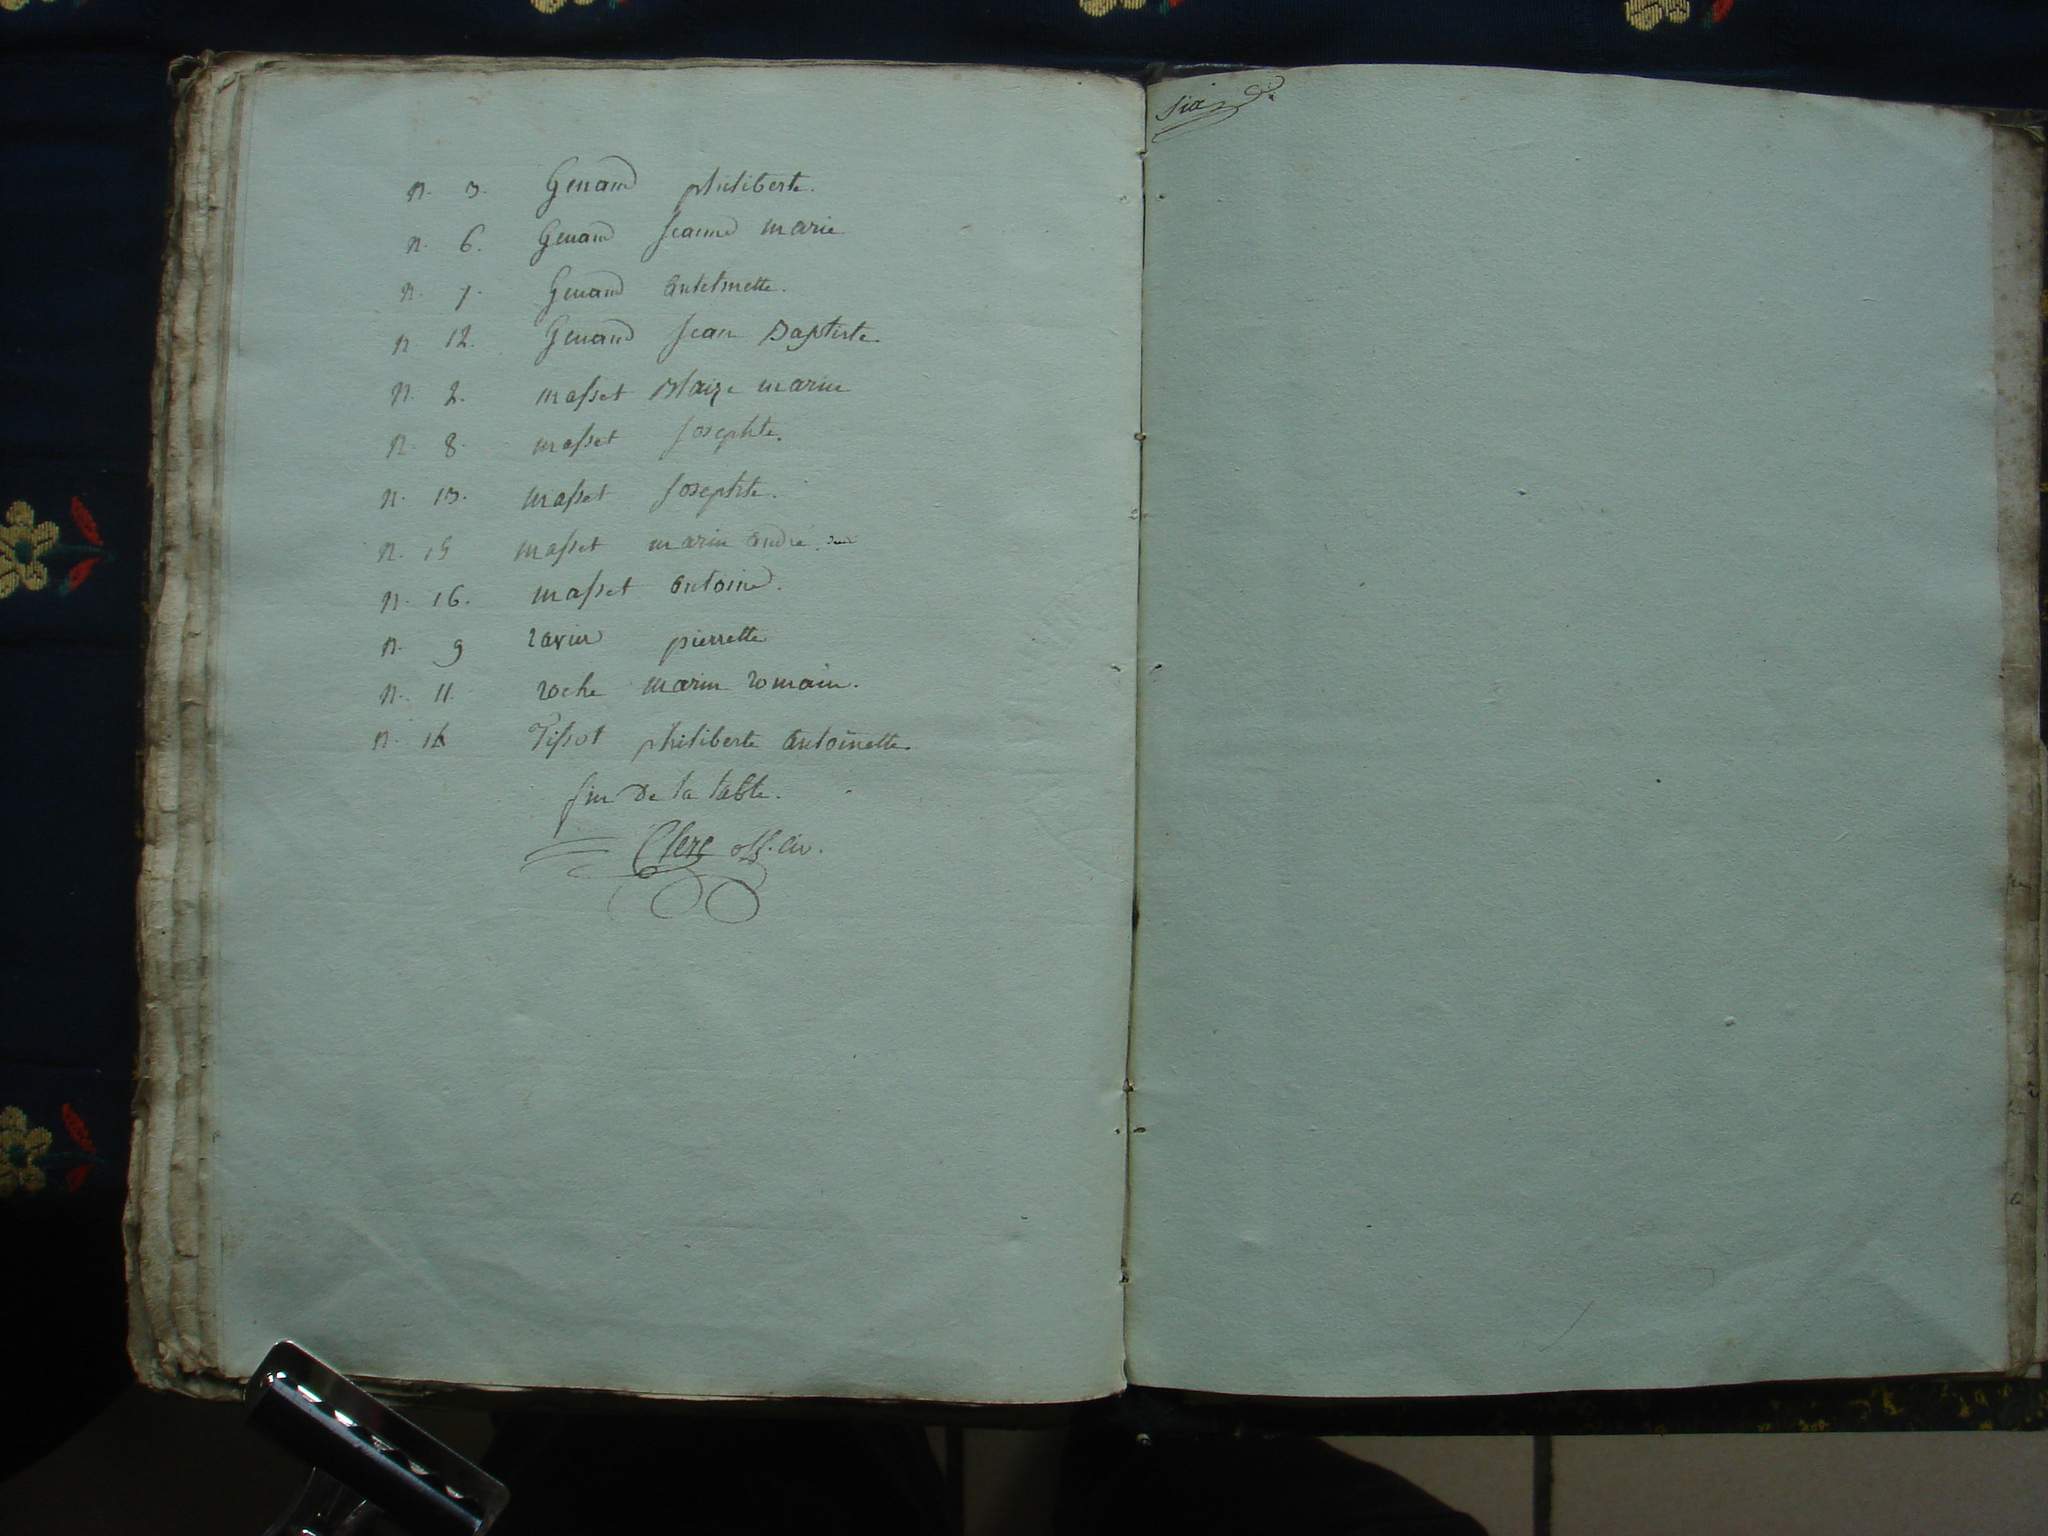 n. 3. Genaud philiberte.
n. 6. Genaud jeanne marie
n. 7. Genaud antelmette.
n 12. Genaud jean Baptiste.
n. 2. masset Blaize marin
n. 8. masset josephte.
n. 13. masset josephte.
n. 15 masset marin andré.
n. 16. masset antoine.
n. 9 ravier pierrette
n. 11. roche marin romain.
n. 14 Tissot philiberte antoinette.
fin de la table.
Clerc off. civ.
six